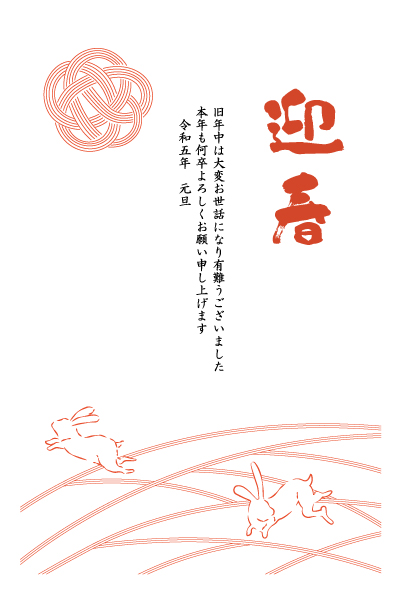 迎春
旧年中は大変お世話になり有難うございました
本年も何卒よろしくお願い申し上げます
令和五年　元旦